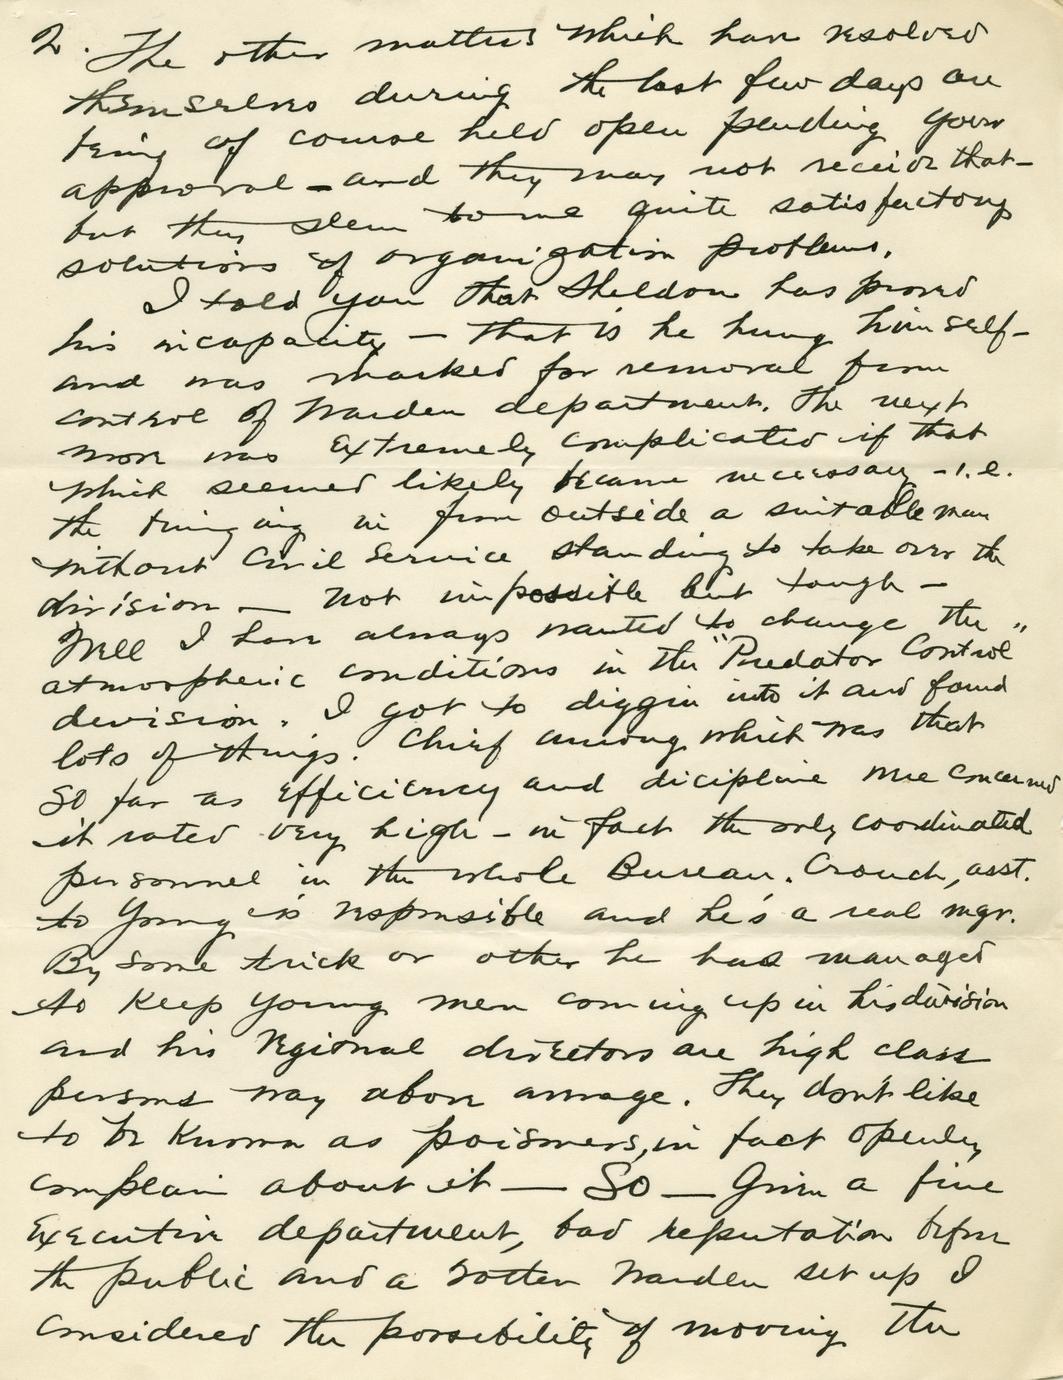 2. The other matters which have resolved
themselves during the last few days are
being of course held open pending your
approval - and they may not receive that -
but they seem to me quite satisfactory
solutions of organization problems.
I told you that Sheldon has proved
his incapacity — that is he hung himself -
and was marked for removal from
control of Warden department. The next
move was extremely complicated if that
which seemed likely became necessary - i.e.
the bringing in from outside a suitable man
without Civil Service standing to take over the
division — Not impossible but tough —
Well I have always wanted to change the
atmospheric conditions in the "Predator Control"
devision. I got to diggin into it and found
lots of things. Chief among which was that
so far as efficiency and dicipline were concerned
it rated very high - in fact the only coordinated
personnel in the whole Bureau. Crouch, asst.
to Young is responsible and he's a real mgr.
By some trick or other he has managed
to keep young men coming up in his division
and his regional directors are high class
persons way above average. They don't like
to be known as poisoners, in fact openly
complain about it — So — Given a fine
executive department, bad reputation before
the public and a rotten Warden set up I
considered the possibility of moving the